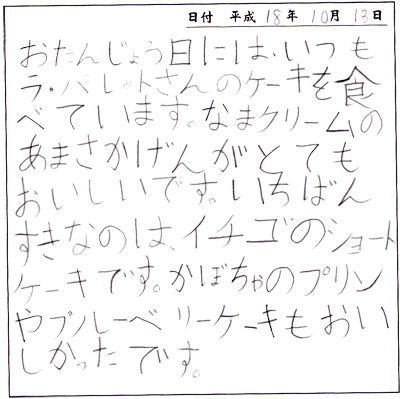 日付 平成 18年 10月 13日
おたんじょう日には、いつも
ラ・パレットさんのケーキを食
べています。なまクリームの
あまさかげんがとても
おいしいです。いちばん
すきなのは、イチゴのショート
ケーキです。かぼちゃのプリン
やブルーベリーケーキもおい
しかったです。